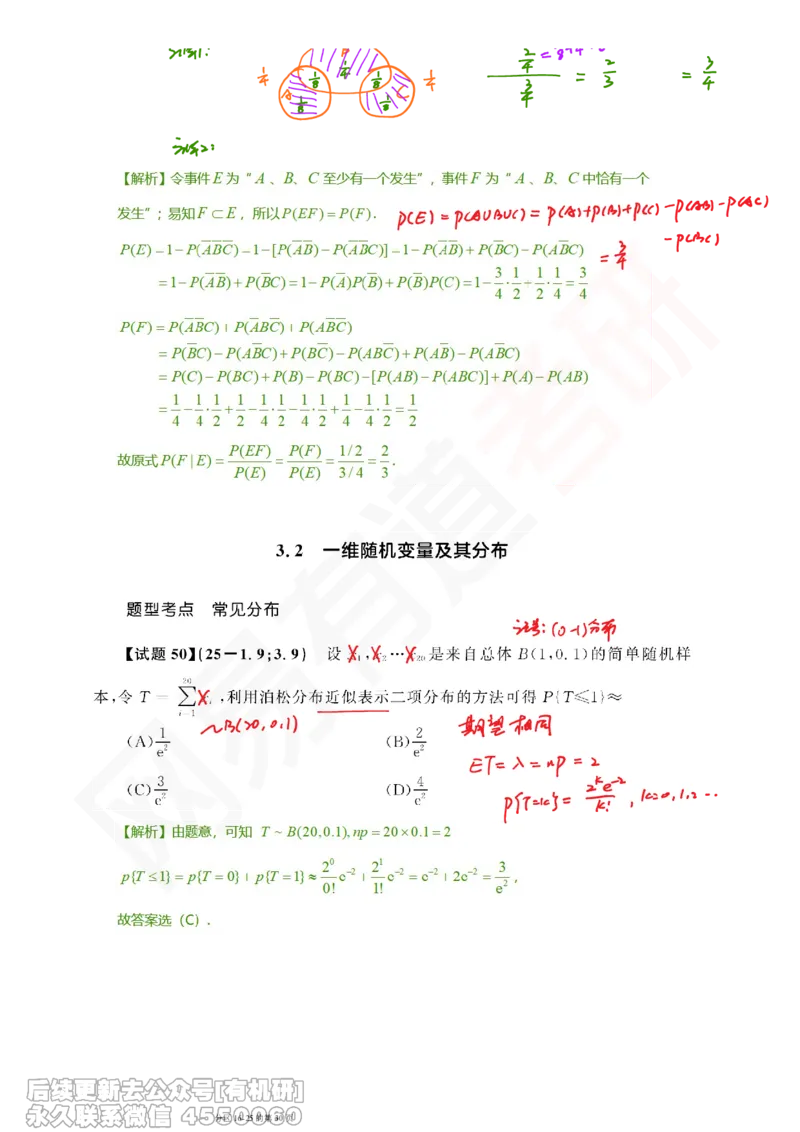 1/4 1/8 1/4 1/8 1/4
A C
1/8 1/8
2/4
3/4 = 2/3 = 3/4
方法2:
【解析】令事件E为“A、B、C至少有一个发生”,事件F为“A、B、C中恰有一个
发生”;易知F⊂E,所以P(EF)=P(F).
P(E)=P(A∪B∪C)=P(A)+P(B)+P(C)-P(AB)-P(AC)
-P(BC)
=3/4
P(E)=1-P(A̅B̅C̅)=1-[P(A̅B̅)-P(A̅B̅C)]=1-P(A̅B̅)+P(B̅C)-P(AB̅C)
=1-P(A̅B̅)+P(B̅C)=1-P(A̅)P(B̅)+P(B̅)P(C)=1-3/4·1/2+1/2·1/4=3/4
P(F)=P(AB̅C̅)+P(A̅BC̅)+P(A̅B̅C)
=P(B̅C)-P(AB̅C)+P(BC̅)-P(ABC̅)+P(AB̅)-P(AB̅C)
=P(C)-P(BC)+P(B)-P(BC)-[P(AB)-P(ABC)]+P(A)-P(AB)
=1/4-1/4·1/2+1/2-1/4·1/2-1/4·1/2+1/4-1/4·1/2=1/2
故原式P(F|E)=P(EF)/P(E)=P(F)/P(E)=1/2/3/4=2/3.
3.2 一维随机变量及其分布
题型考点 常见分布
注:(0-1)分布
【试题50】(25-1.9;3.9) 设X₁,X₂…X₂₀是来自总体B(1,0.1)的简单随机样
本,令T=∑_{i=1}^{20}Xᵢ,利用泊松分布近似表示二项分布的方法可得P{T≤1}≈
~B(20,0.1) 期望相同
(A)1/e² (B)2/e²
ET=λ=np=2
(C)3/e² (D)4/e²
P{T=k}=2ᵏe⁻²/k!,k=0,1,2…
【解析】由题意,可知 T~B(20,0.1),np=20×0.1=2
p{T≤1}=p{T=0}+p{T=1}≈2⁰/0!e⁻²+2¹/1!e⁻²=e⁻²+2e⁻²=3/e²,
故答案选(C).
网易有道考研
后续更新去公众号[有机研]
永久联系微信 4550060